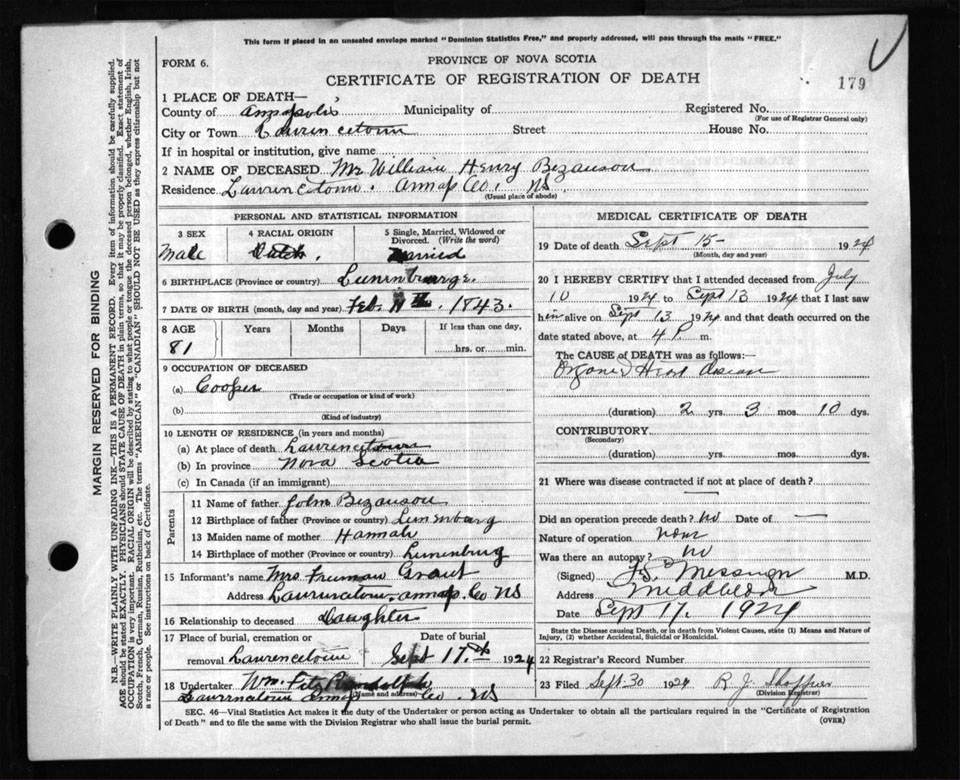 This form if placed in an unsealed envelope marked "Dominion Statistics Free," and properly addressed, will pass through the mails "FREE."
FORM 6.
PROVINCE OF NOVA SCOTIA
CERTIFICATE OF REGISTRATION OF DEATH
179
1 PLACE OF DEATH—
County of Annapolis Municipality of Registered No.
(For use of Registrar General only)
City or Town Laurencetown Street House No.
If in hospital or institution, give name
2 NAME OF DECEASED Mr William Henry Bezanson
Residence Laurencetown. Annap Co. NS
(Usual place of abode)
MARGIN RESERVED FOR BINDING
N.B.—WRITE PLAINLY WITH UNFADING INK—THIS IS A PERMANENT RECORD. Every item of information should be carefully supplied.
AGE should be stated EXACTLY. PHYSICIANS should STATE CAUSE OF DEATH in plain terms, so that it may be properly classified. Exact statement of
OCCUPATION is very important. RACIAL ORIGIN will be described by stating to what people or tongue the deceased person belonged, whether English, Irish,
Scotch, French, German, Russian, Ruthenian, etc. The terms "AMERICAN" or "CANADIAN" SHOULD NOT BE USED as they express citizenship but not
a race or people. See instructions on back of Certificate.
PERSONAL AND STATISTICAL INFORMATION
3 SEX 4 RACIAL ORIGIN 5 Single, Married, Widowed or
Divorced. (Write the word)
Male Dutch. Married
6 BIRTHPLACE (Province or country) Lunenburge
7 DATE OF BIRTH (month, day and year) Feb. 1843.
8 AGE Years Months Days If less than one day,
81 hrs. or min.
9 OCCUPATION OF DECEASED
(a) Cooper
(Trade or occupation or kind of work)
(b)
(Kind of industry)
10 LENGTH OF RESIDENCE (in years and months)
(a) At place of death Laurencetown
(b) In province Nova Scotia
(c) In Canada (if an immigrant)
Parents
11 Name of father John Bezanson
12 Birthplace of father (Province or country) Lunenburg
13 Maiden name of mother Hannah
14 Birthplace of mother (Province or country) Lunenburg
15 Informant's name Mrs Freeman Grant
Address Laurencetown. annap. Co NS
16 Relationship to deceased Daughter
17 Place of burial, cremation or Date of burial
removal Laurencetown Sept 17th 1924
18 Undertaker Wm. Fitz Randolph
(Name and address)
Laurencetown Annap Co. NS
MEDICAL CERTIFICATE OF DEATH
19 Date of death Sept 15- 1924
(Month, day and year)
20 I HEREBY CERTIFY that I attended deceased from July
10 1924 to Sept 13 1924 that I last saw
him alive on Sept 13 1924 and that death occurred on the
date stated above, at 4 P. m.
The CAUSE of DEATH was as follows:—
Organic Heart Disease
(duration) 2 yrs. 3 mos. 10 dys.
CONTRIBUTORY
(Secondary)
(duration) yrs. mos. dys.
21 Where was disease contracted if not at place of death?
—
Did an operation precede death? No Date of —
Nature of operation None
Was there an autopsy? No
(Signed) M.D.
Address Middleton
Date Sept 17. 1924
State the Disease causing Death, or in death from Violent Causes, state (1) Means and Nature of
Injury, (2) whether Accidental, Suicidal or Homicidal.
22 Registrar's Record Number
23 Filed Sept 30 1924 R. J. Shaffner
(Division Registrar)
SEC. 46—Vital Statistics Act makes it the duty of the Undertaker or person acting as Undertaker to obtain all the particulars required in the "Certificate of Registration
of Death" and to file the same with the Division Registrar who shall issue the burial permit.
(OVER)